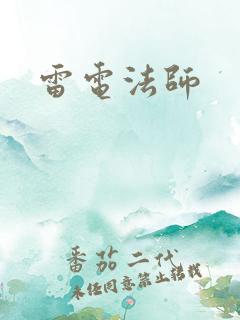 雷電法師
番茄二代
未經同意禁止轉載